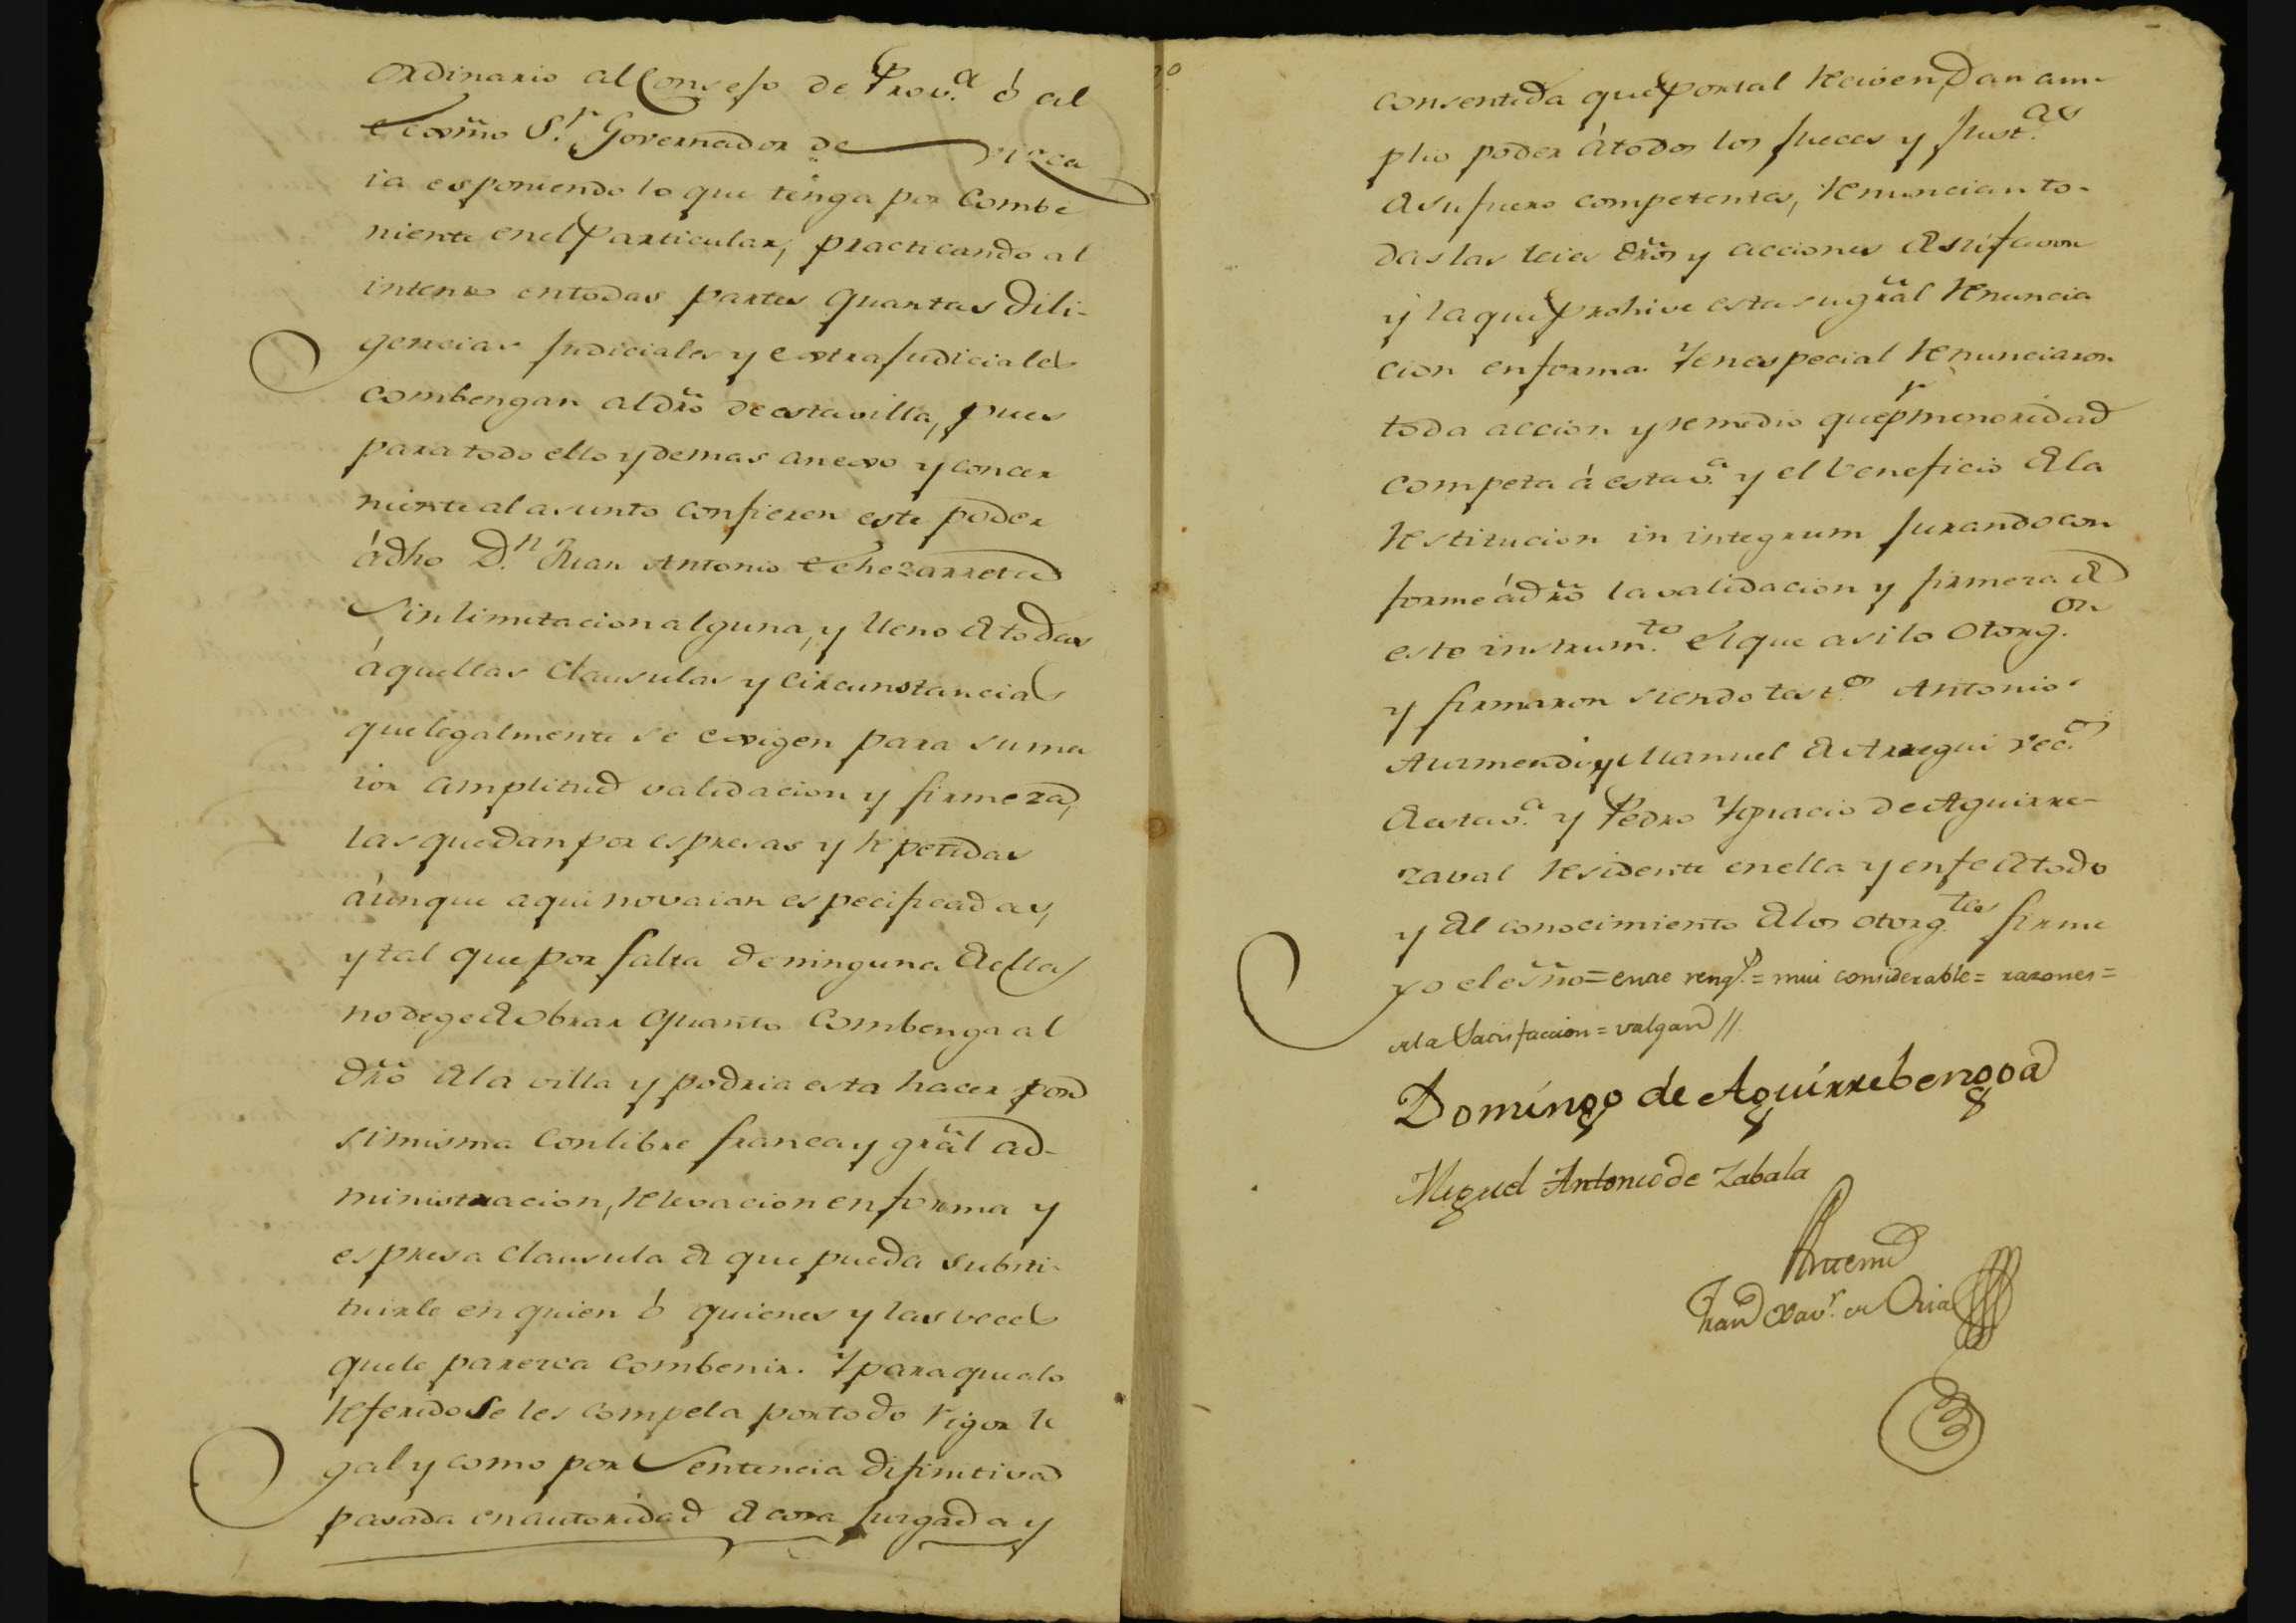 ordinario al Consejo de Prov.ª ó al
Excm̃o S.r Governador de Vizca
ia esponiendo lo que tenga por Combe
niente en el Particular, practicando al
intento en todas partes quantas Dili-
gencias Judiciales y extraJudiciales
combengan al dr̃o de esta villa, pues
para todo ello y demas anexo y concer
niente al asunto confieren este poder
á dho D.n Juan Antonio Echezarreta
Sin limitacion alguna, y lleno de todas
áquellas Clausulas y circunstancias
que legalmente se exigen para su ma
ior amplitud validacion y firmeza,
las que dan por espresas y repetidas
áunque aqui no vaian especificadas,
y tal que por falta de ninguna de ellas
no dege de obrar quanto Combenga al
dr̃o de la villa y podria esta hacer por
si misma con libre franca y gr̃al ad-
ministracion, relevacion en forma y
espresa clausula de que pueda substi-
tuirle en quien ó quienes y las veces
que le parezca combenir. Y para que a lo
referido se les compela por todo rigor le
gal y como por Sentencia difinitiva
pasada en autoridad de cosa Juzgada y
consentida que por tal reciven, Dan am-
plio poder á todos los Jueces y Just.as
de su fuero competentes, renuncian to-
das las leies dr̃os y acciones de su favor
y la que prohive esta su gr̃al renuncia
cion en forma. Y en especial renunciaron
toda accion y remedio que p.r menoridad
competa á esta v.ª y el beneficio de la
restitucion in integrum Jurando con
forme á dr̃o la validacion y firmeza de
este instrum.to el que asi lo otorg.on
y firmaron siendo test.os Antonio
Aurmendi y Manuel de Arregui vec.os
de esta v.ª y Pedro Ygnacio de Aguirre-
zaval residente en ella y en fe de todo
y del conocimiento de los otorg.tes firme
yo el esño = entre reng.s = mui considerable = razones =
a la Satisfaccion = valgan //
Domingo de Aguirrebengoa
Miguel Antonio de Zabala
Antemi
Fran.co Xav.r de Oria